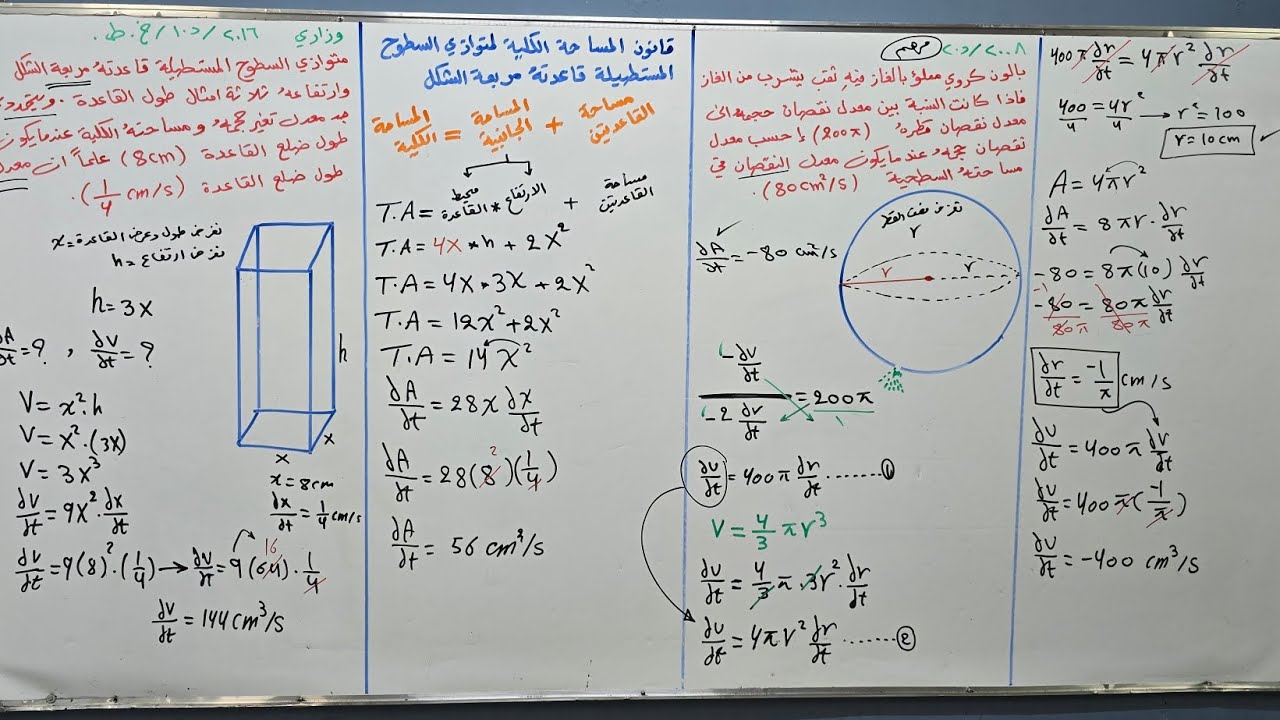 وزاري ٢٠١٦ / د١٠ / خ. ط.
متوازي السطوح المستطيلة قاعدته مربعة الشكل
وارتفاعه ثلاثة امثال طول القاعدة. ويتمدد
جد معدل تغير حجمه ومساحته الكلية عندما يكون
طول ضلع القاعدة (8cm) علماً ان معدل
طول ضلع القاعدة (1/4 cm/s).
نفرض طول وعرض القاعدة = x
نفرض ارتفاع = h
h = 3x
∂A/∂t = ? , ∂v/∂t = ?
V = x²·h
V = x²·(3x)
V = 3x³
∂v/∂t = 9x²·∂x/∂t
∂v/∂t = 9(8)²·(1/4) → ∂v/∂t = 9(64)·1/4
16
∂v/∂t = 144 cm³/s
h
x
x
x = 8cm
∂x/∂t = 1/4 cm/s
قانون المساحة الكلية لمتوازي السطوح
المستطيلة قاعدته مربعة الشكل
المساحة الكلية = المساحة الجانبية + مساحة القاعدتين
T.A = محيط القاعدة * الارتفاع + مساحة القاعدتين
T.A = 4x * h + 2x²
T.A = 4x * 3x + 2x²
T.A = 12x² + 2x²
T.A = 14x²
∂A/∂t = 28x ∂x/∂t
∂A/∂t = 28(8)(1/4)
2
∂A/∂t = 56 cm²/s
٢٠٠٨ / د٢ مهم
بالون كروي مملؤ بالغاز فيه ثقب يتسرب من الغاز
فاذا كانت النسبة بين معدل نقصان حجمه الى
معدل نقصان قطره (200π) احسب معدل
نقصان حجمه عندما يكون معدل النقصان في
مساحته السطحية (80cm²/s).
نفرض نصف القطر
r
r
r
∂A/∂t = -80 cm²/s
-∂v/∂t / -2 ∂r/∂t = 200π / 1
∂v/∂t = 400π ∂r/∂t ........ ①
V = 4/3 πr³
∂v/∂t = 4/3 π·3r²·∂r/∂t
∂v/∂t = 4πr² ∂r/∂t ....... ②
400π ∂r/∂t = 4πr² ∂r/∂t
400/4 = 4r²/4 → r² = 100
r = 10cm
A = 4πr²
∂A/∂t = 8πr·∂r/∂t
-80 = 8π(10) ∂r/∂t
-80/80π = 80π/80π ∂r/∂t
-1
∂r/∂t = -1/π cm/s
∂v/∂t = 400π ∂v/∂t
∂v/∂t = 400π(-1/π)
∂v/∂t = -400 cm³/s